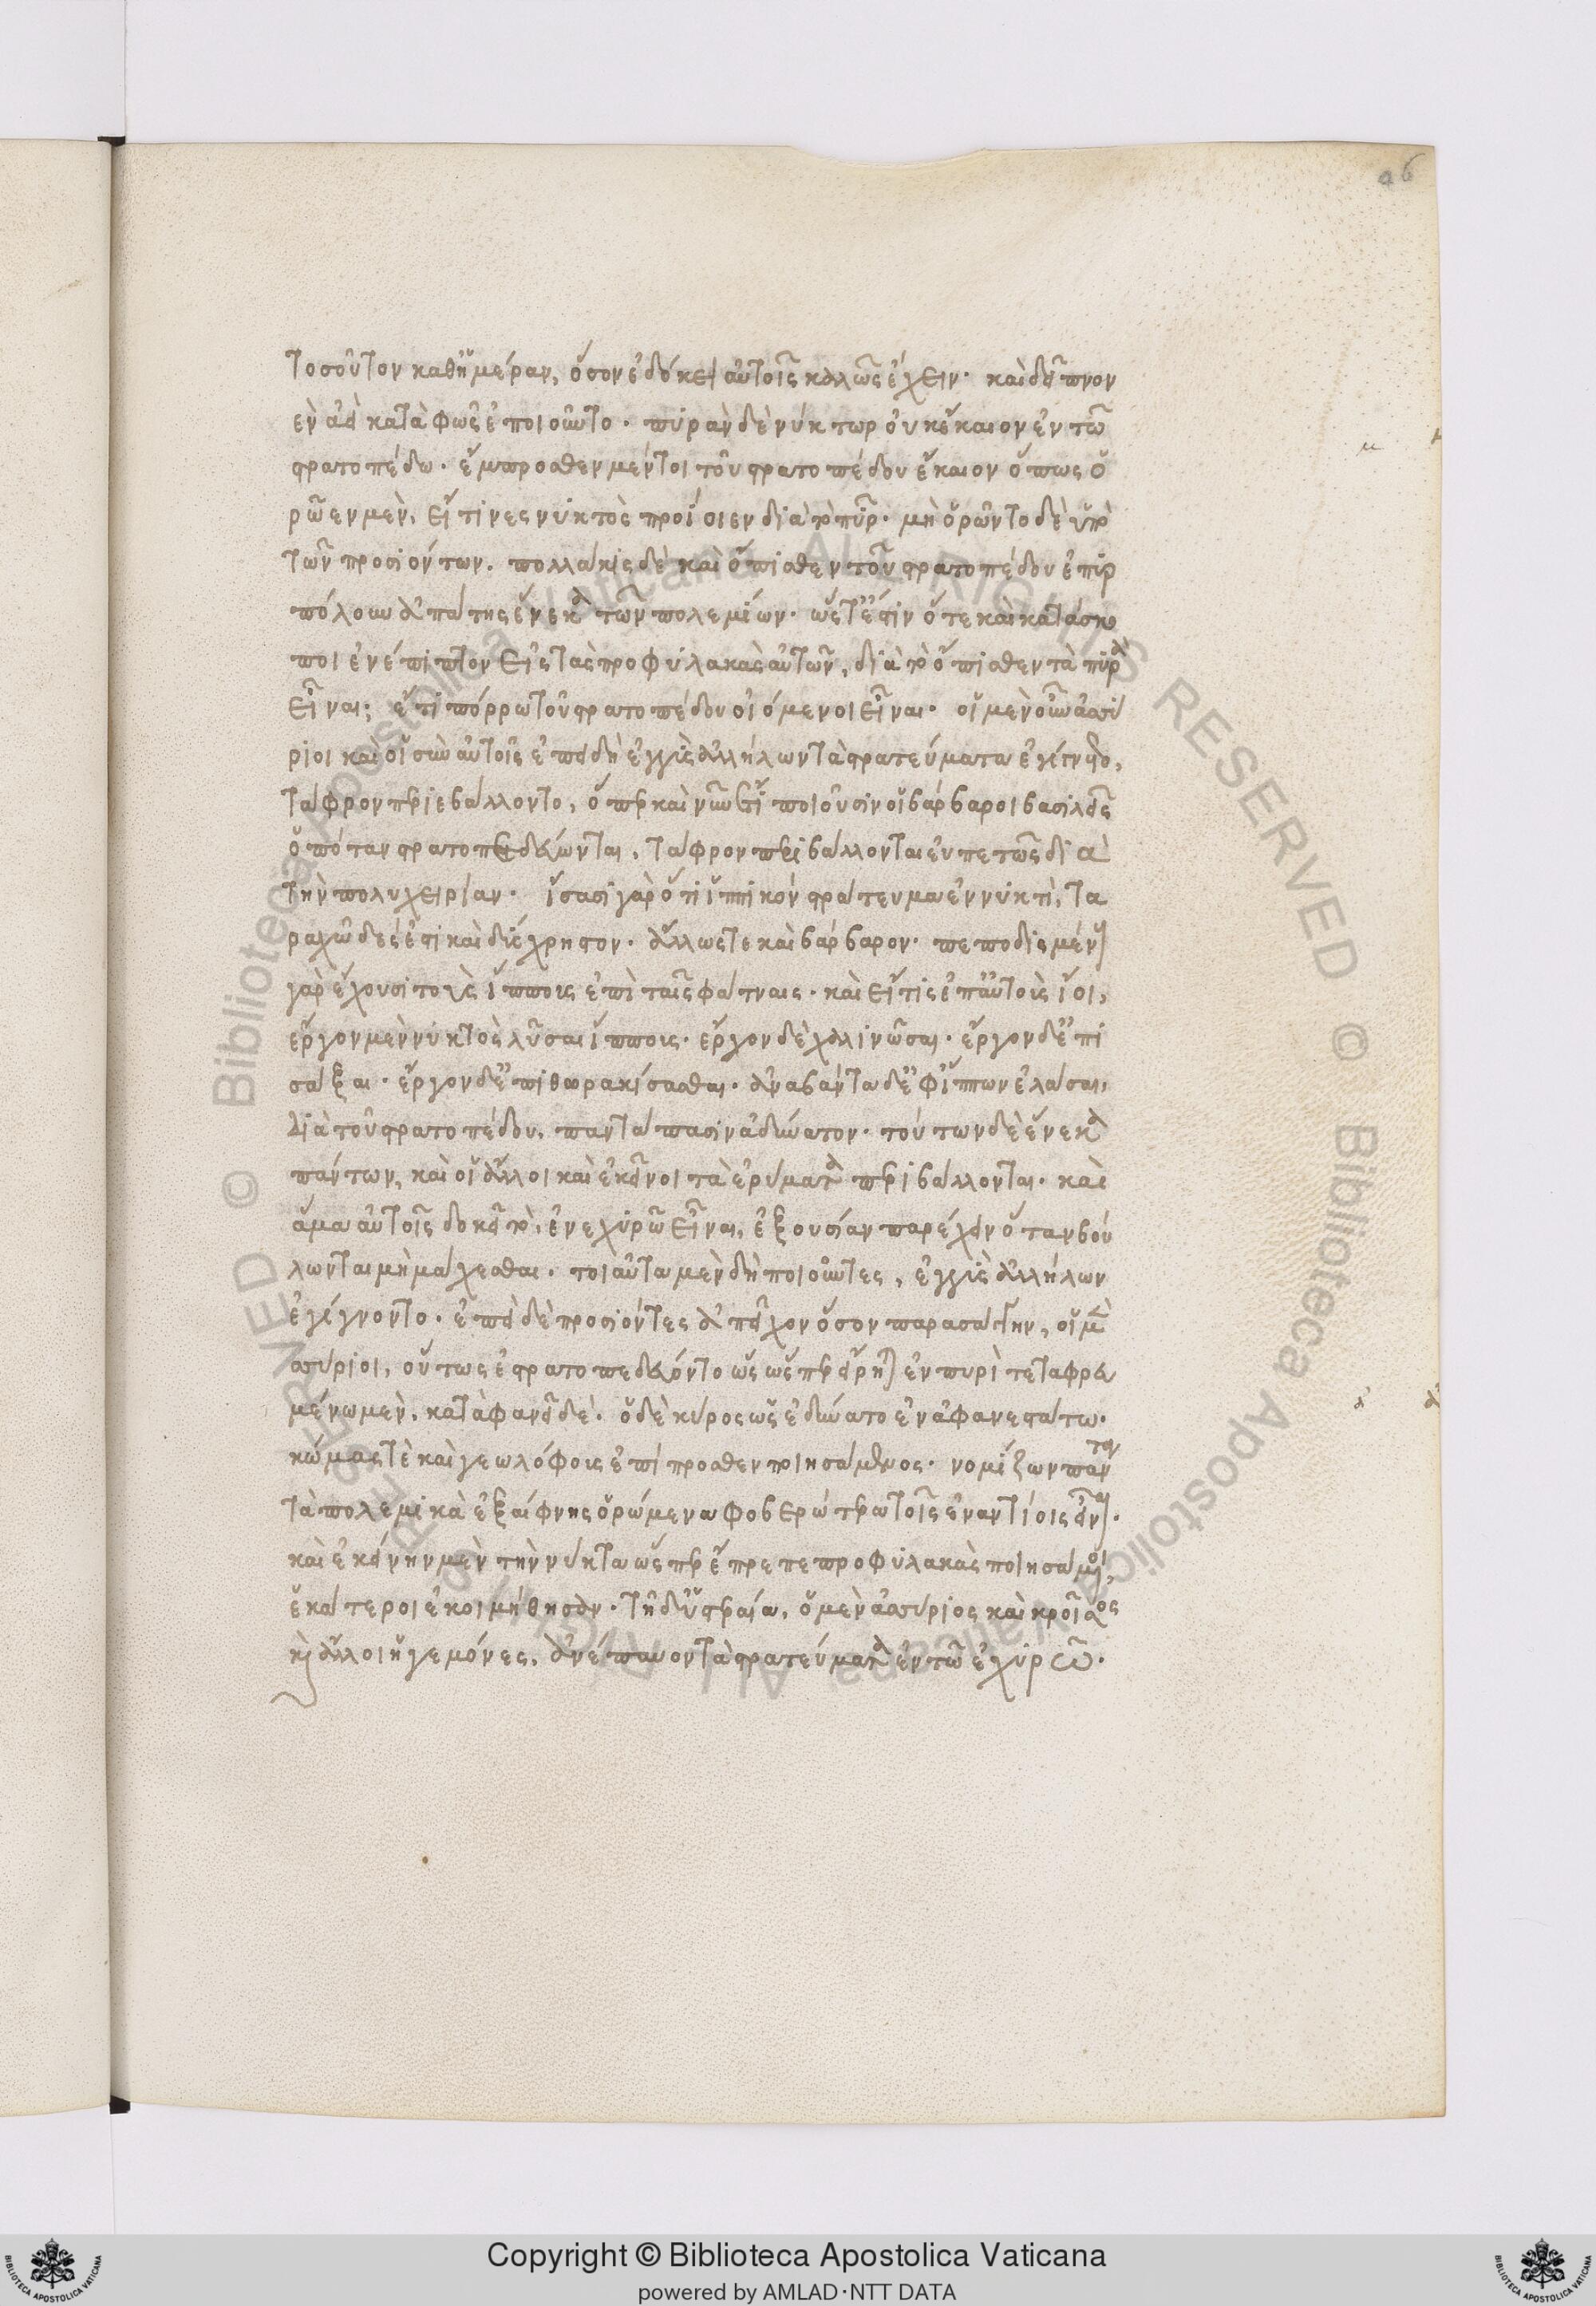 46
τοσοῦτον καθ' ἡμέραν, ὅσον ἐδόκει αὐτοῖς καλῶς ἔχειν· καὶ δεῖπνον
ἐν ἀεὶ κατὰ φῶς ἐποιοῦντο· πῦρ ἂν δὲ νύκτωρ οὐκ ἔκαιον ἐν τῶ
στρατοπέδω· ἔμπροσθεν μέντοι τοῦ στρατοπέδου ἔκαιον ὅπως ὁ
ρῶεν μὲν, εἴ τινες νυκτὸς προΐοιεν διὰ τὸ πῦρ· μὴ ὁρῶντο δὲ ὑπὸ
τῶν προσιόντων. πολλάκις δὲ καὶ ὄπισθεν τοῦ στρατοπέδου ἐπυρ
πόλουν ἀπάτης ἕνεκα τῶν πολεμίων· ὥστ' ἔστιν ὅτε καὶ κατάσκο
ποι ἐνέπιπτον εἰς τὰς προφυλακὰς αὐτῶν, διὰ τὸ ὄπισθεν τὰ πυρὰ
εἶναι; ἔτι πόρρω τοῦ στρατοπέδου οἰόμενοι εἶναι· οἱ μὲν οὖν ἀσσύ
ριοι καὶ οἱ σὺν αὐτοῖς ἐπειδὴ ἐγγὺς ἀλλήλων τὰ στρατεύματα ἐγίγνετο,
τάφρον περιεβάλλοντο, ὅπερ καὶ νῦν ἔτι ποιοῦσιν οἱ βάρβαροι βασιλεῖς
ὁπόταν στρατοπεδεύωνται, τάφρον περιβάλλονται εὐπετῶς διὰ
τὴν πολυχειρίαν· ἴσασι γὰρ ὅτι ἱππικὸν στράτευμα ἐν νυκτὶ, τα
ραχῶδές ἐστι καὶ δύσχρηστον· ἄλλως τε καὶ βάρβαρον· πεποδισμένους
γὰρ ἔχουσι τοὺς ἵππους ἐπὶ ταῖς φάτναις· καὶ εἴ τις ἐπ' αὐτοὺς ἴοι,
ἔργον μὲν νυκτὸς λῦσαι ἵππους· ἔργον δὲ χαλινῶσαι· ἔργον δ' ἐπι
σάξαι· ἔργον δ' ἐπιθωρακίσασθαι· ἀναβάντα δ' ἐφ' ἵππων ἐλάσαι,
διὰ τοῦ στρατοπέδου, παντάπασιν ἀδύνατον· τούτων δὲ ἕνεκα
πάντων, καὶ οἱ ἄλλοι καὶ ἐκεῖνοι τὰ ἐρύματα περιβάλλονται· καὶ
ἅμα αὐτοῖς δοκεῖ τὸ, ἐν ἐχυρῶ εἶναι, ἐξουσίαν παρέχειν ὅταν βού
λωνται μὴ μάχεσθαι· τοιαῦτα μὲν δὴ ποιοῦντες, ἐγγὺς ἀλλήλων
ἐγίγνοντο· ἐπεὶ δὲ προσιόντες ἀπεῖχον ὅσον παρασάγγην, οἱ μὲν
ἀσσύριοι, οὕτως ἐστρατοπεδεύοντο ὡς ὥσπερ εἴρηται ἐν πυρὶ τεταφρευ
μένω μὲν, καταφανεῖ δὲ· ὁ δὲ κῦρος ὡς ἐδύνατο ἐν ἀφανεστάτω·
κώμας τὲ καὶ γεωλόφους ἐπίπροσθεν ποιησάμενος· νομίζων πάντα
τὰ πολεμικὰ ἐξαίφνης ὁρώμενα φοβερώτερα τοῖς ἐναντίοις εἶναι·
καὶ ἐκείνην μὲν τὴν νύκτα ὥσπερ ἔπρεπε προφυλακὰς ποιησάμενοι,
ἑκάτεροι ἐκοιμήθησαν· τῇ δ' ὑστεραία, ὁ μὲν ἀσσύριος καὶ κροῖσος
καὶ ἄλλοι ἡγεμόνες, ἀνέπαυον τὰ στρατεύματα ἐν τῶ ἐχυρῶ·
Copyright © Biblioteca Apostolica Vaticana
powered by AMLAD·NTT DATA